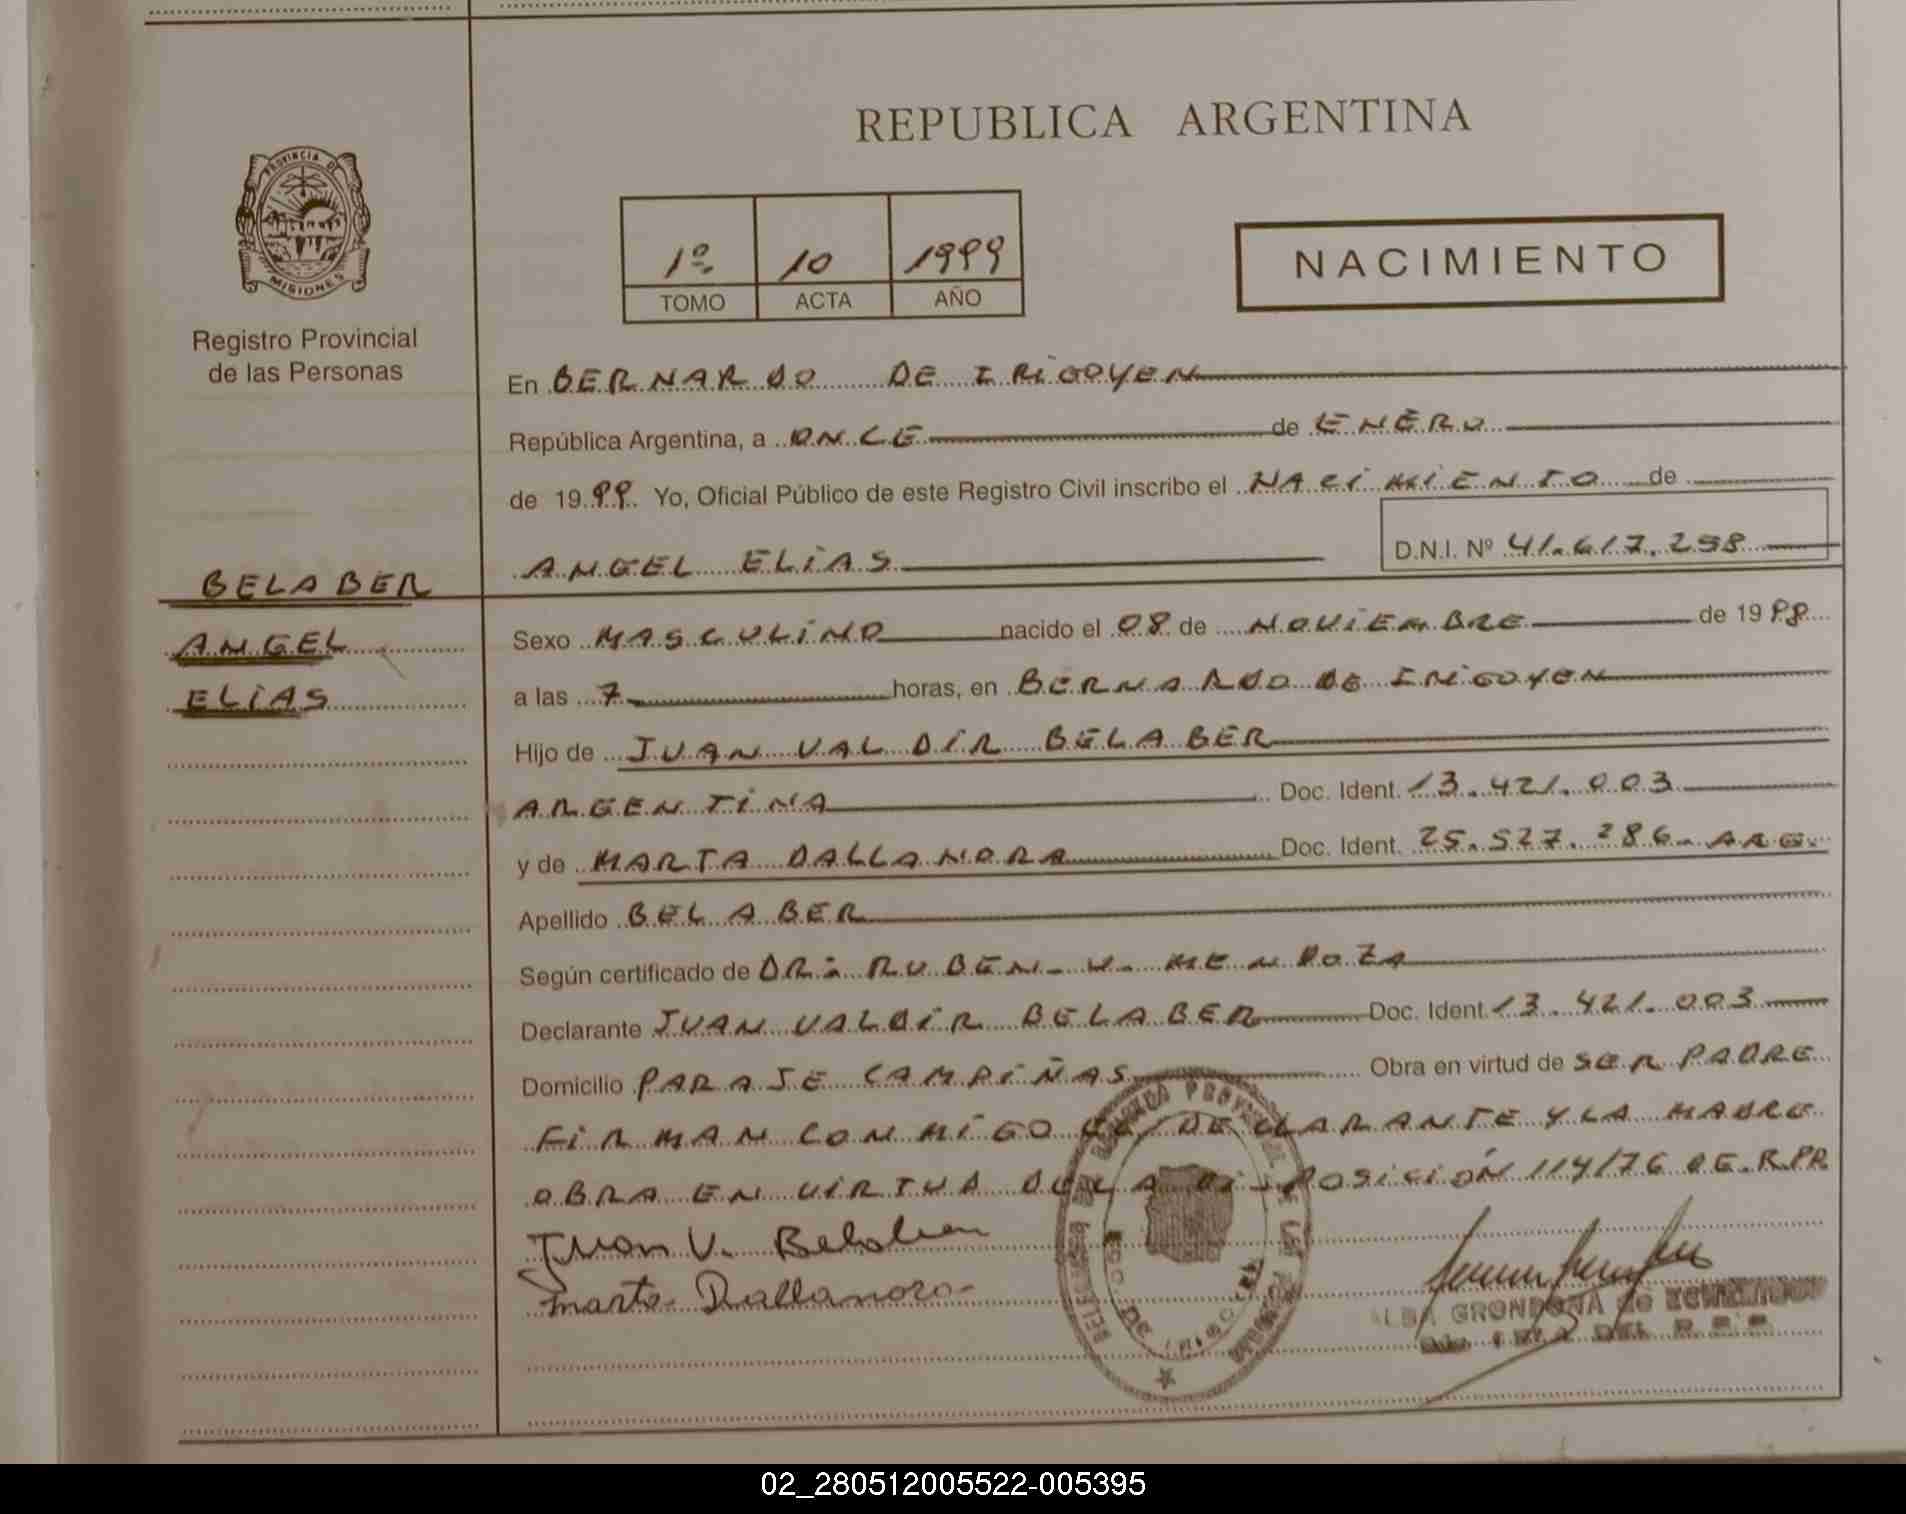 REPUBLICA ARGENTINA
PROVINCIA DE
MISIONES
Registro Provincial
de las Personas
1º 10 1999
TOMO ACTA AÑO
NACIMIENTO
En BERNARDO DE IRIGOYEN
República Argentina, a ONCE de ENERO
de 1999. Yo, Oficial Público de este Registro Civil inscribo el NACIMIENTO de
ANGEL ELIAS D.N.I. Nº 41.617.298
BELABER
ANGEL
ELIAS
Sexo MASCULINO nacido el 08 de NOVIEMBRE de 1998
a las 7 horas, en BERNARDO DE IRIGOYEN
Hijo de JUAN VALDIR BELABER
ARGENTINA Doc. Ident. 13.421.003
y de MARTA DALLANORA Doc. Ident. 25.527.286- ARG.
Apellido BELABER
Según certificado de DR: RUBEN - V. MENDOZA
Declarante JUAN VALDIR BELABER Doc. Ident. 13.421.003
Domicilio PARAJE CAMPIÑAS Obra en virtud de SER PADRE
FIRMAN CONMIGO EL DECLARANTE Y LA MADRE
OBRA EN VIRTUD DE LA DISPOSICIÓN 114/76 DE.R.P.P.
Juan V. Belaber
Marta Dallanora
ALBA GRONDONA de
DEL R.P.P.
02_280512005522-005395